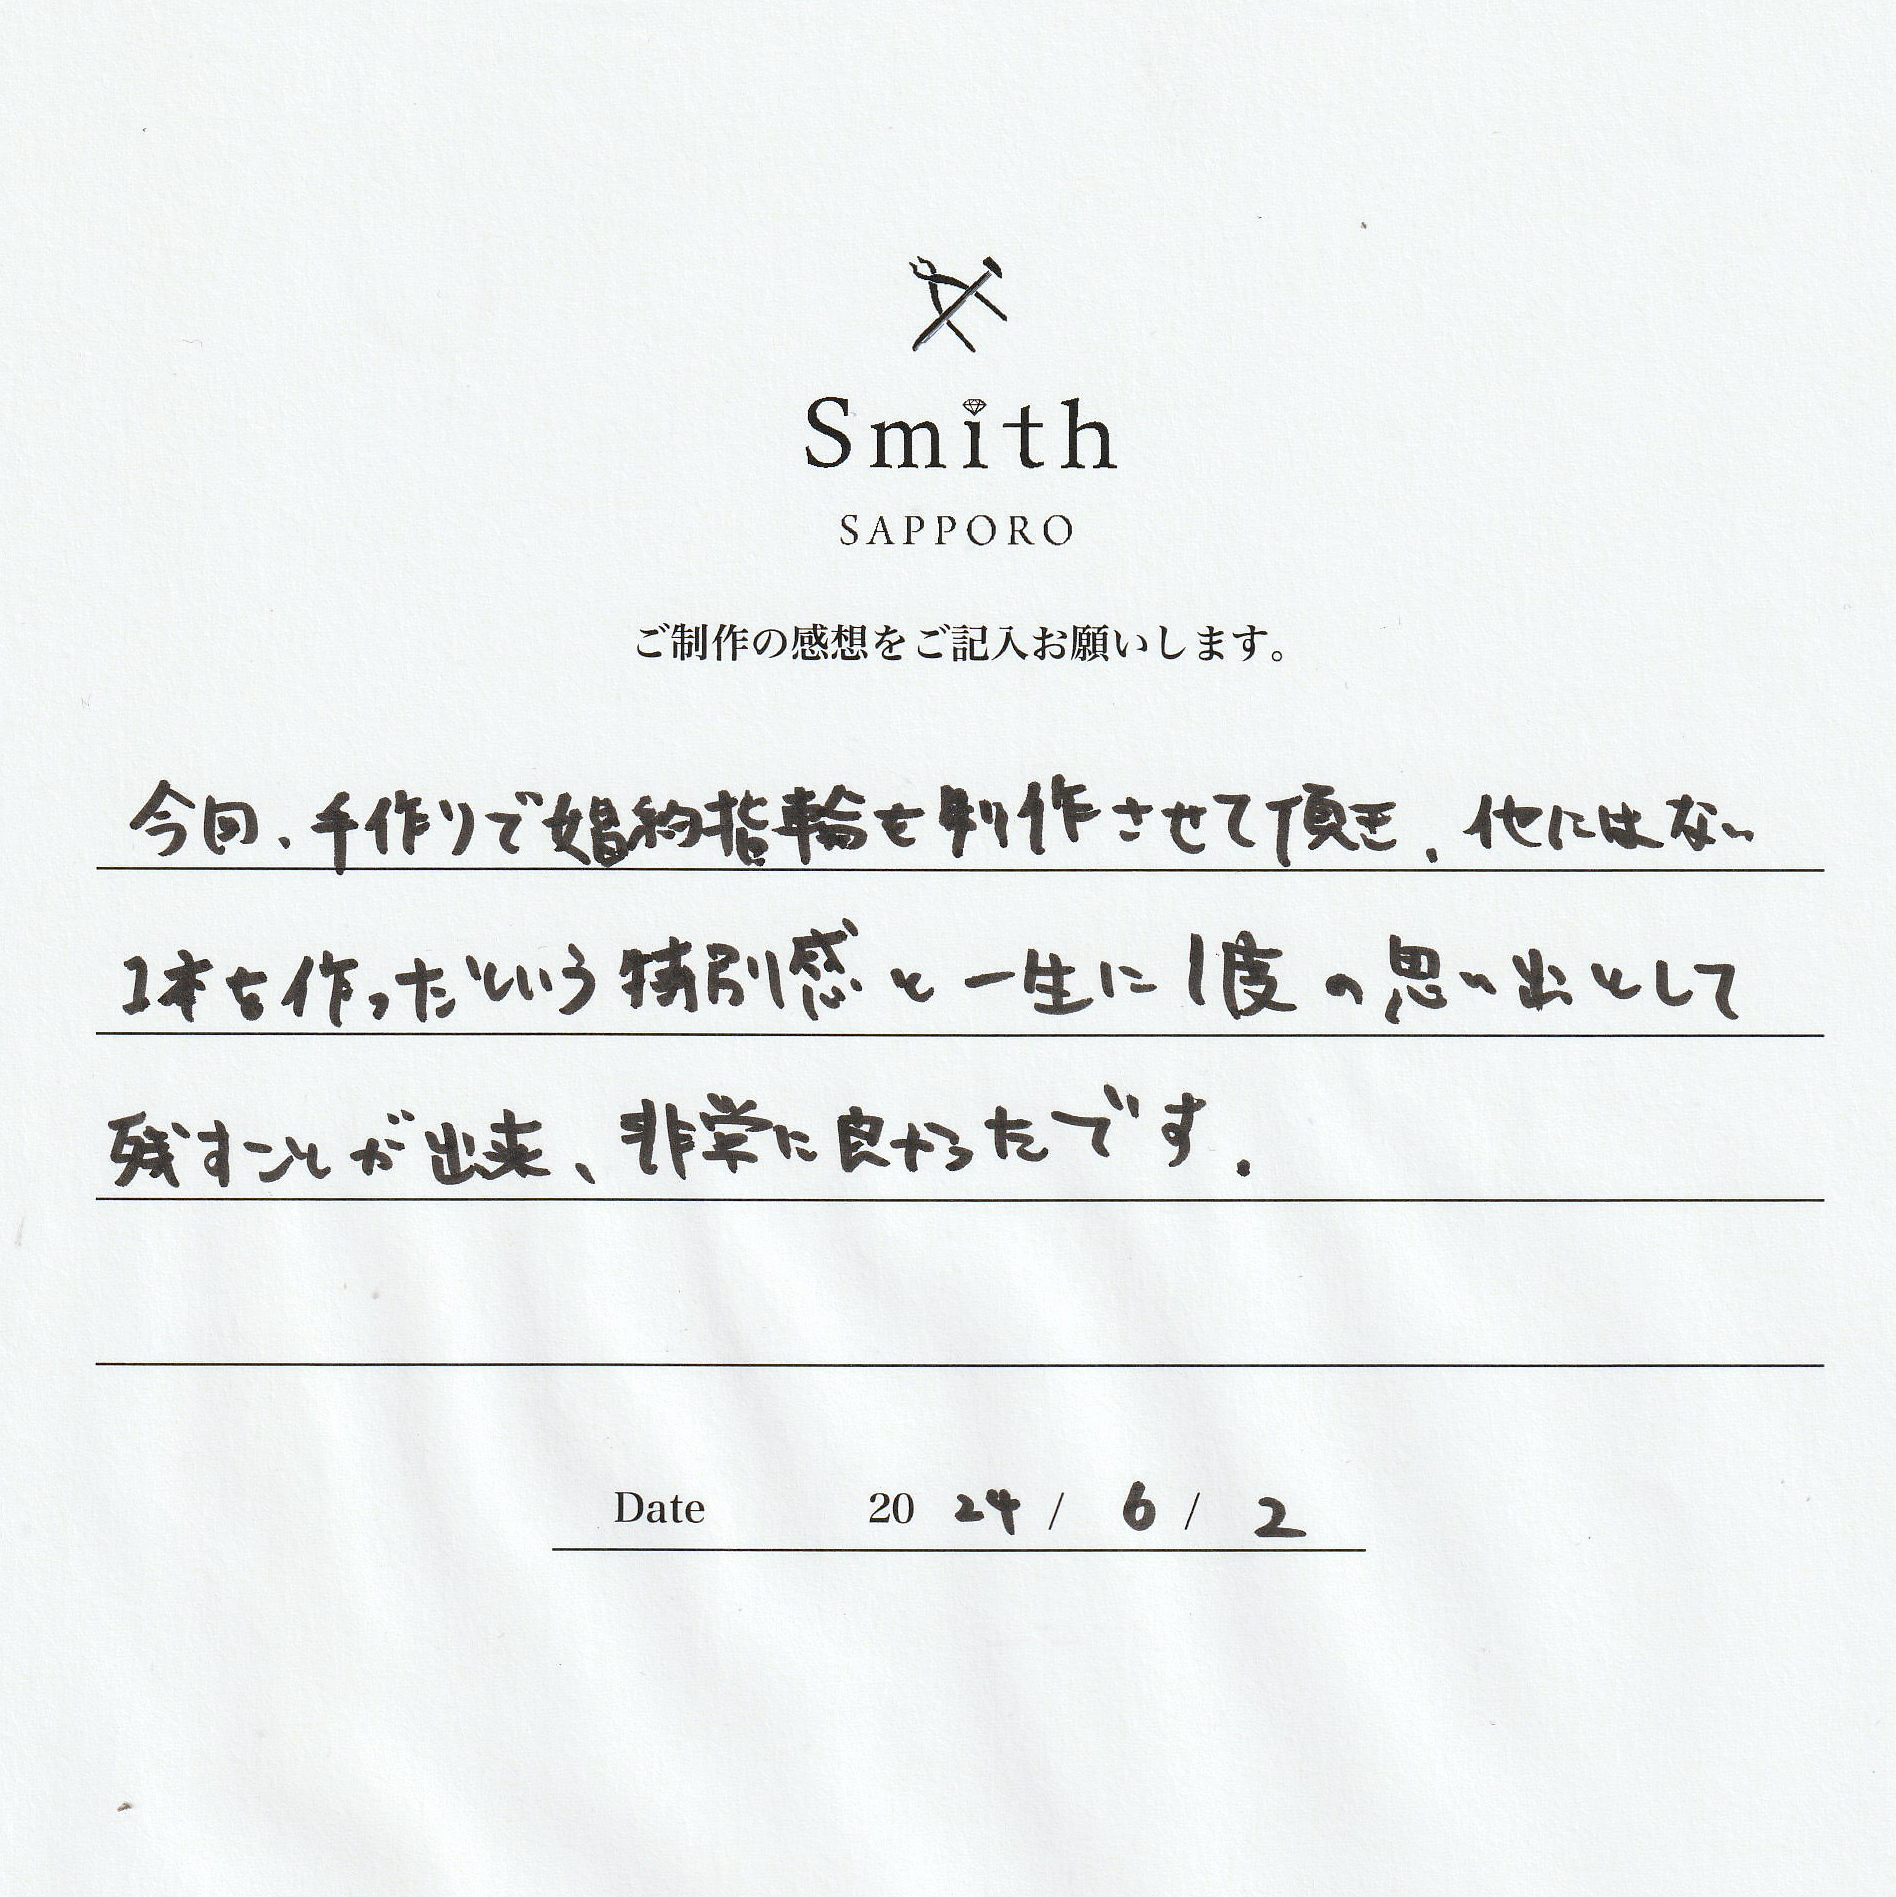 Smith
SAPPORO
ご制作の感想をご記入お願いします。
今回、手作りで婚約指輪を制作させて頂き、他にはない
1本を作ったという特別感と一生に1度の思い出として
残すことが出来、非常に良かったです。
Date 2024 / 6 / 2